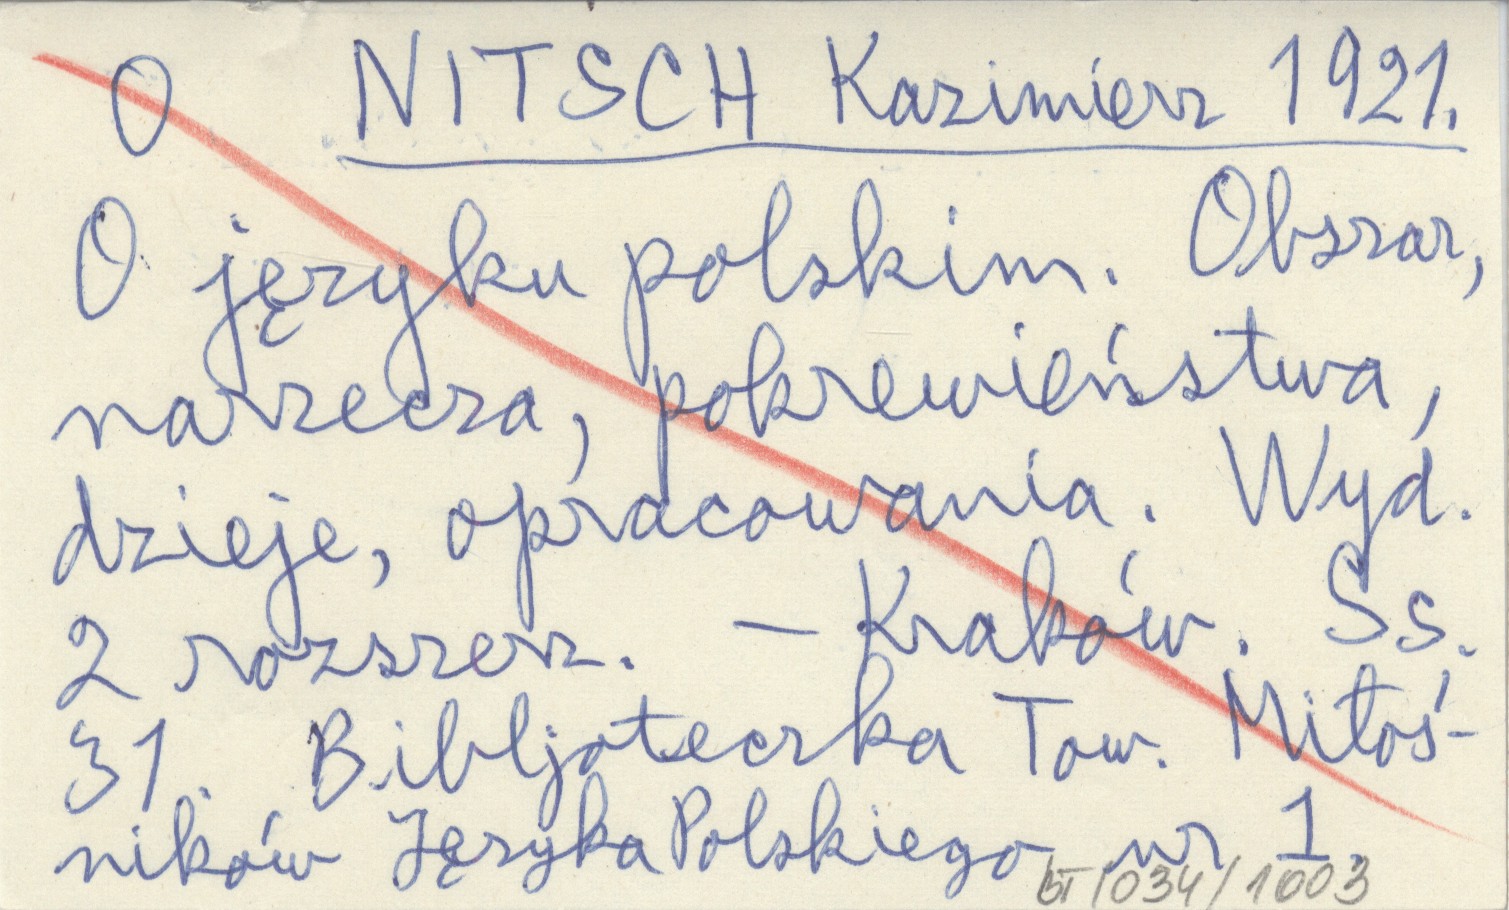 O NITSCH Kazimierz 1921.
O języku polskim. Obszar,
narzecza, pokrewieństwa,
dzieje, opracowania. Wyd.
2 rozszerz. — Kraków. Ss.
31. Bibljoteczka Tow. Miłoś-
ników Języka Polskiego nr 1.
/034/1003